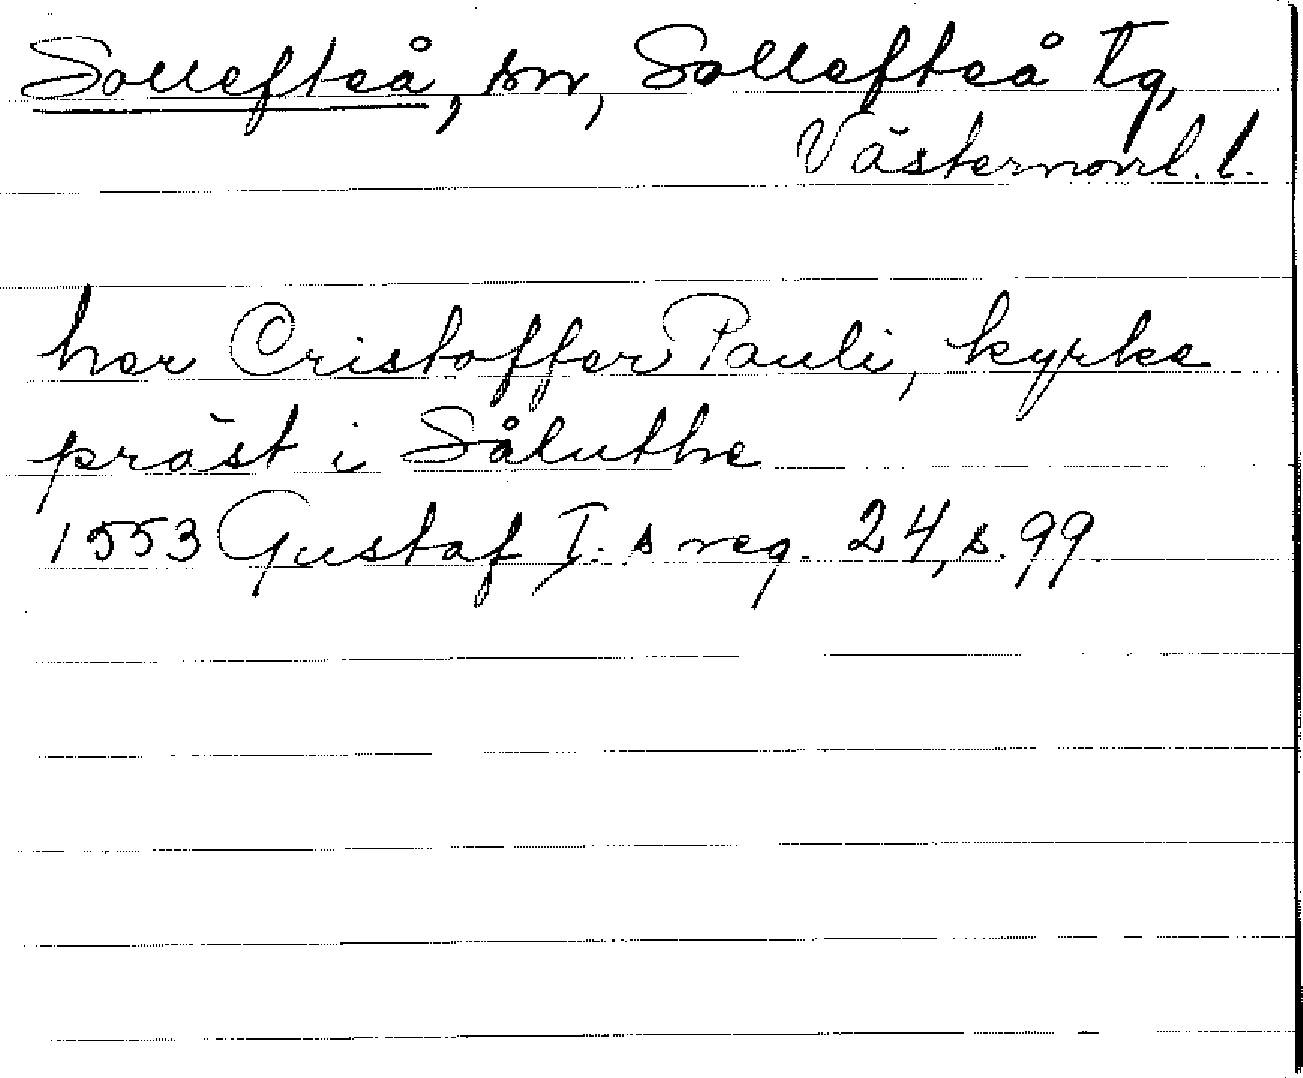 Sollefteå, sn, Sollefteå tg,
Västernorrl. l.
her Cristoffer Pauli, kyrke
präst i Såluthe
1553 Gustaf I:s reg. 24, s. 99